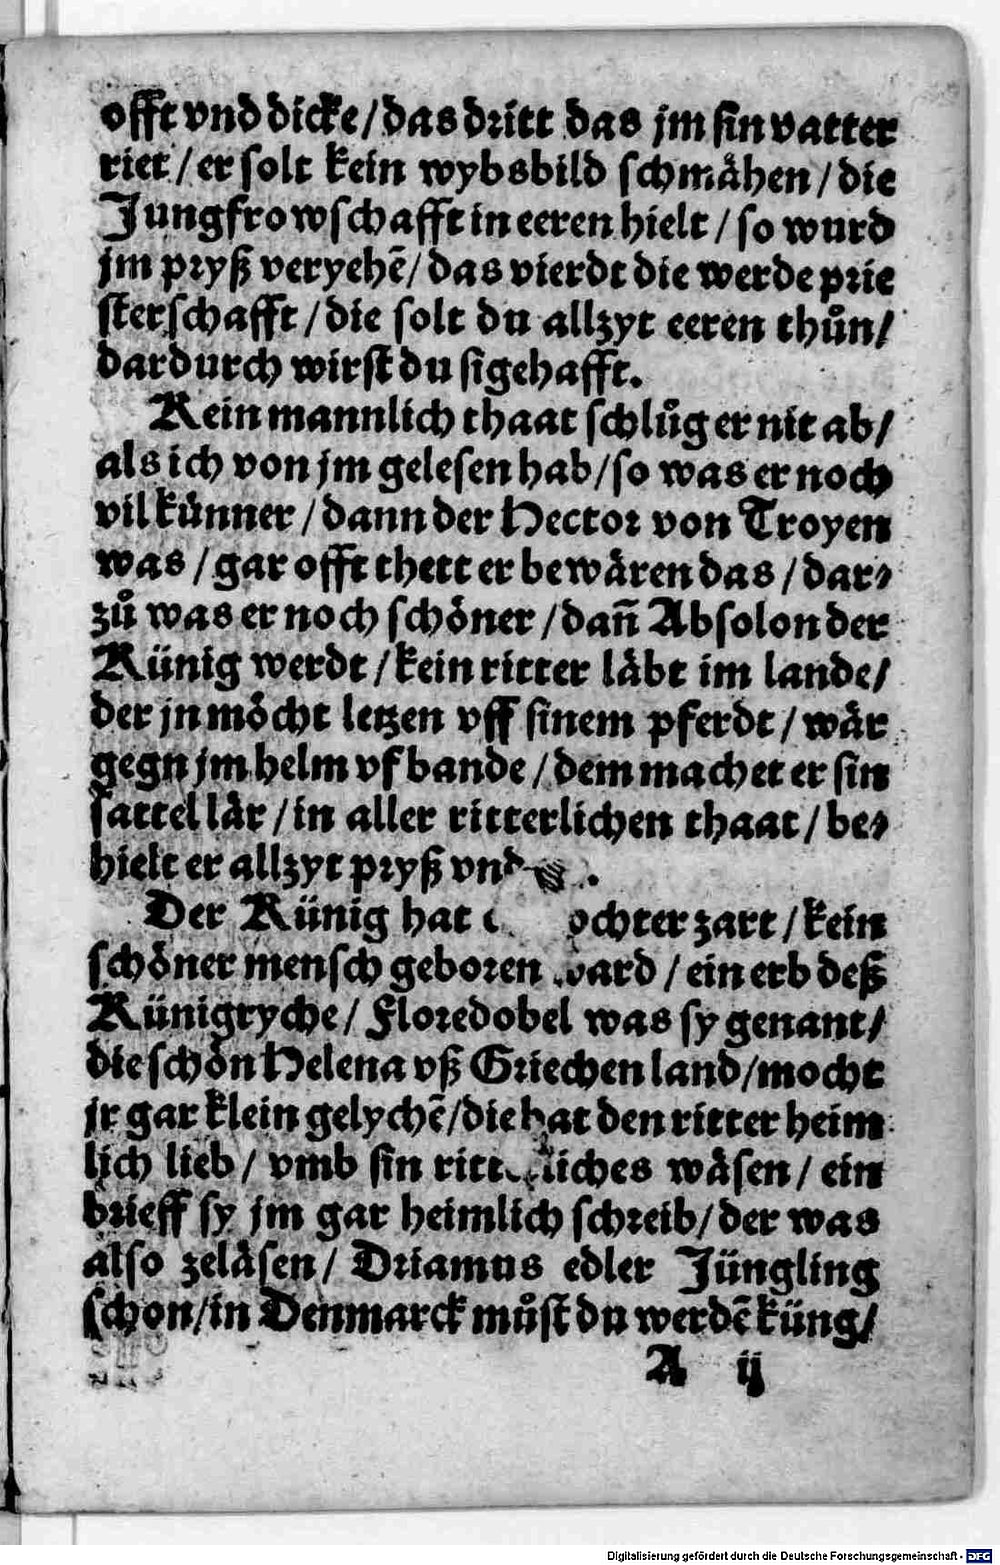 offt vnd dicke / das dritt das jm sin vatter
riet / er solt kein wybsbild schmåhen / die
Jungfrowschafft in eeren hielt / so wurd
jm pryß veryehẽ / das vierdt die werde prie
sterschafft / die solt du allzyt eeren thůn /
dardurch wirst du sigehafft.
Kein mannlich thaat schlůg er nit ab /
als ich von jm gelesen hab / so was er noch
vil kůnner / dann der Hector von Troyen
was / gar offt thett er bewåren das / dar⸗
zů was er noch schöner / dañ Absolon der
Künig werdt / kein ritter låbt im lande /
der jn möcht letzen vff sinem pferdt / wår
gegn jm helm vf bande / dem machet er sin
sattel lår / in aller ritterlichen thaat / be⸗
hielt er allzyt pryß
Der Künig hat ochter zart / kein
schöner mensch geboren ward / ein erb deß
Künigryche / Floredobel was sy genant /
die schön Helena vß Griechen land / mocht
jr gar klein gelychẽ / die hat den ritter heim
lich lieb / vmb sin wåsen / ein
brieff sy jm gar heimlich schreib / der was
also zelåsen / Driamus edler Jüngling
schon / in Denmarck můst du werdẽ küng /
A ij
Digitalisierung gefördert durch die Deutsche Forschungsgemeinschaft - DFG